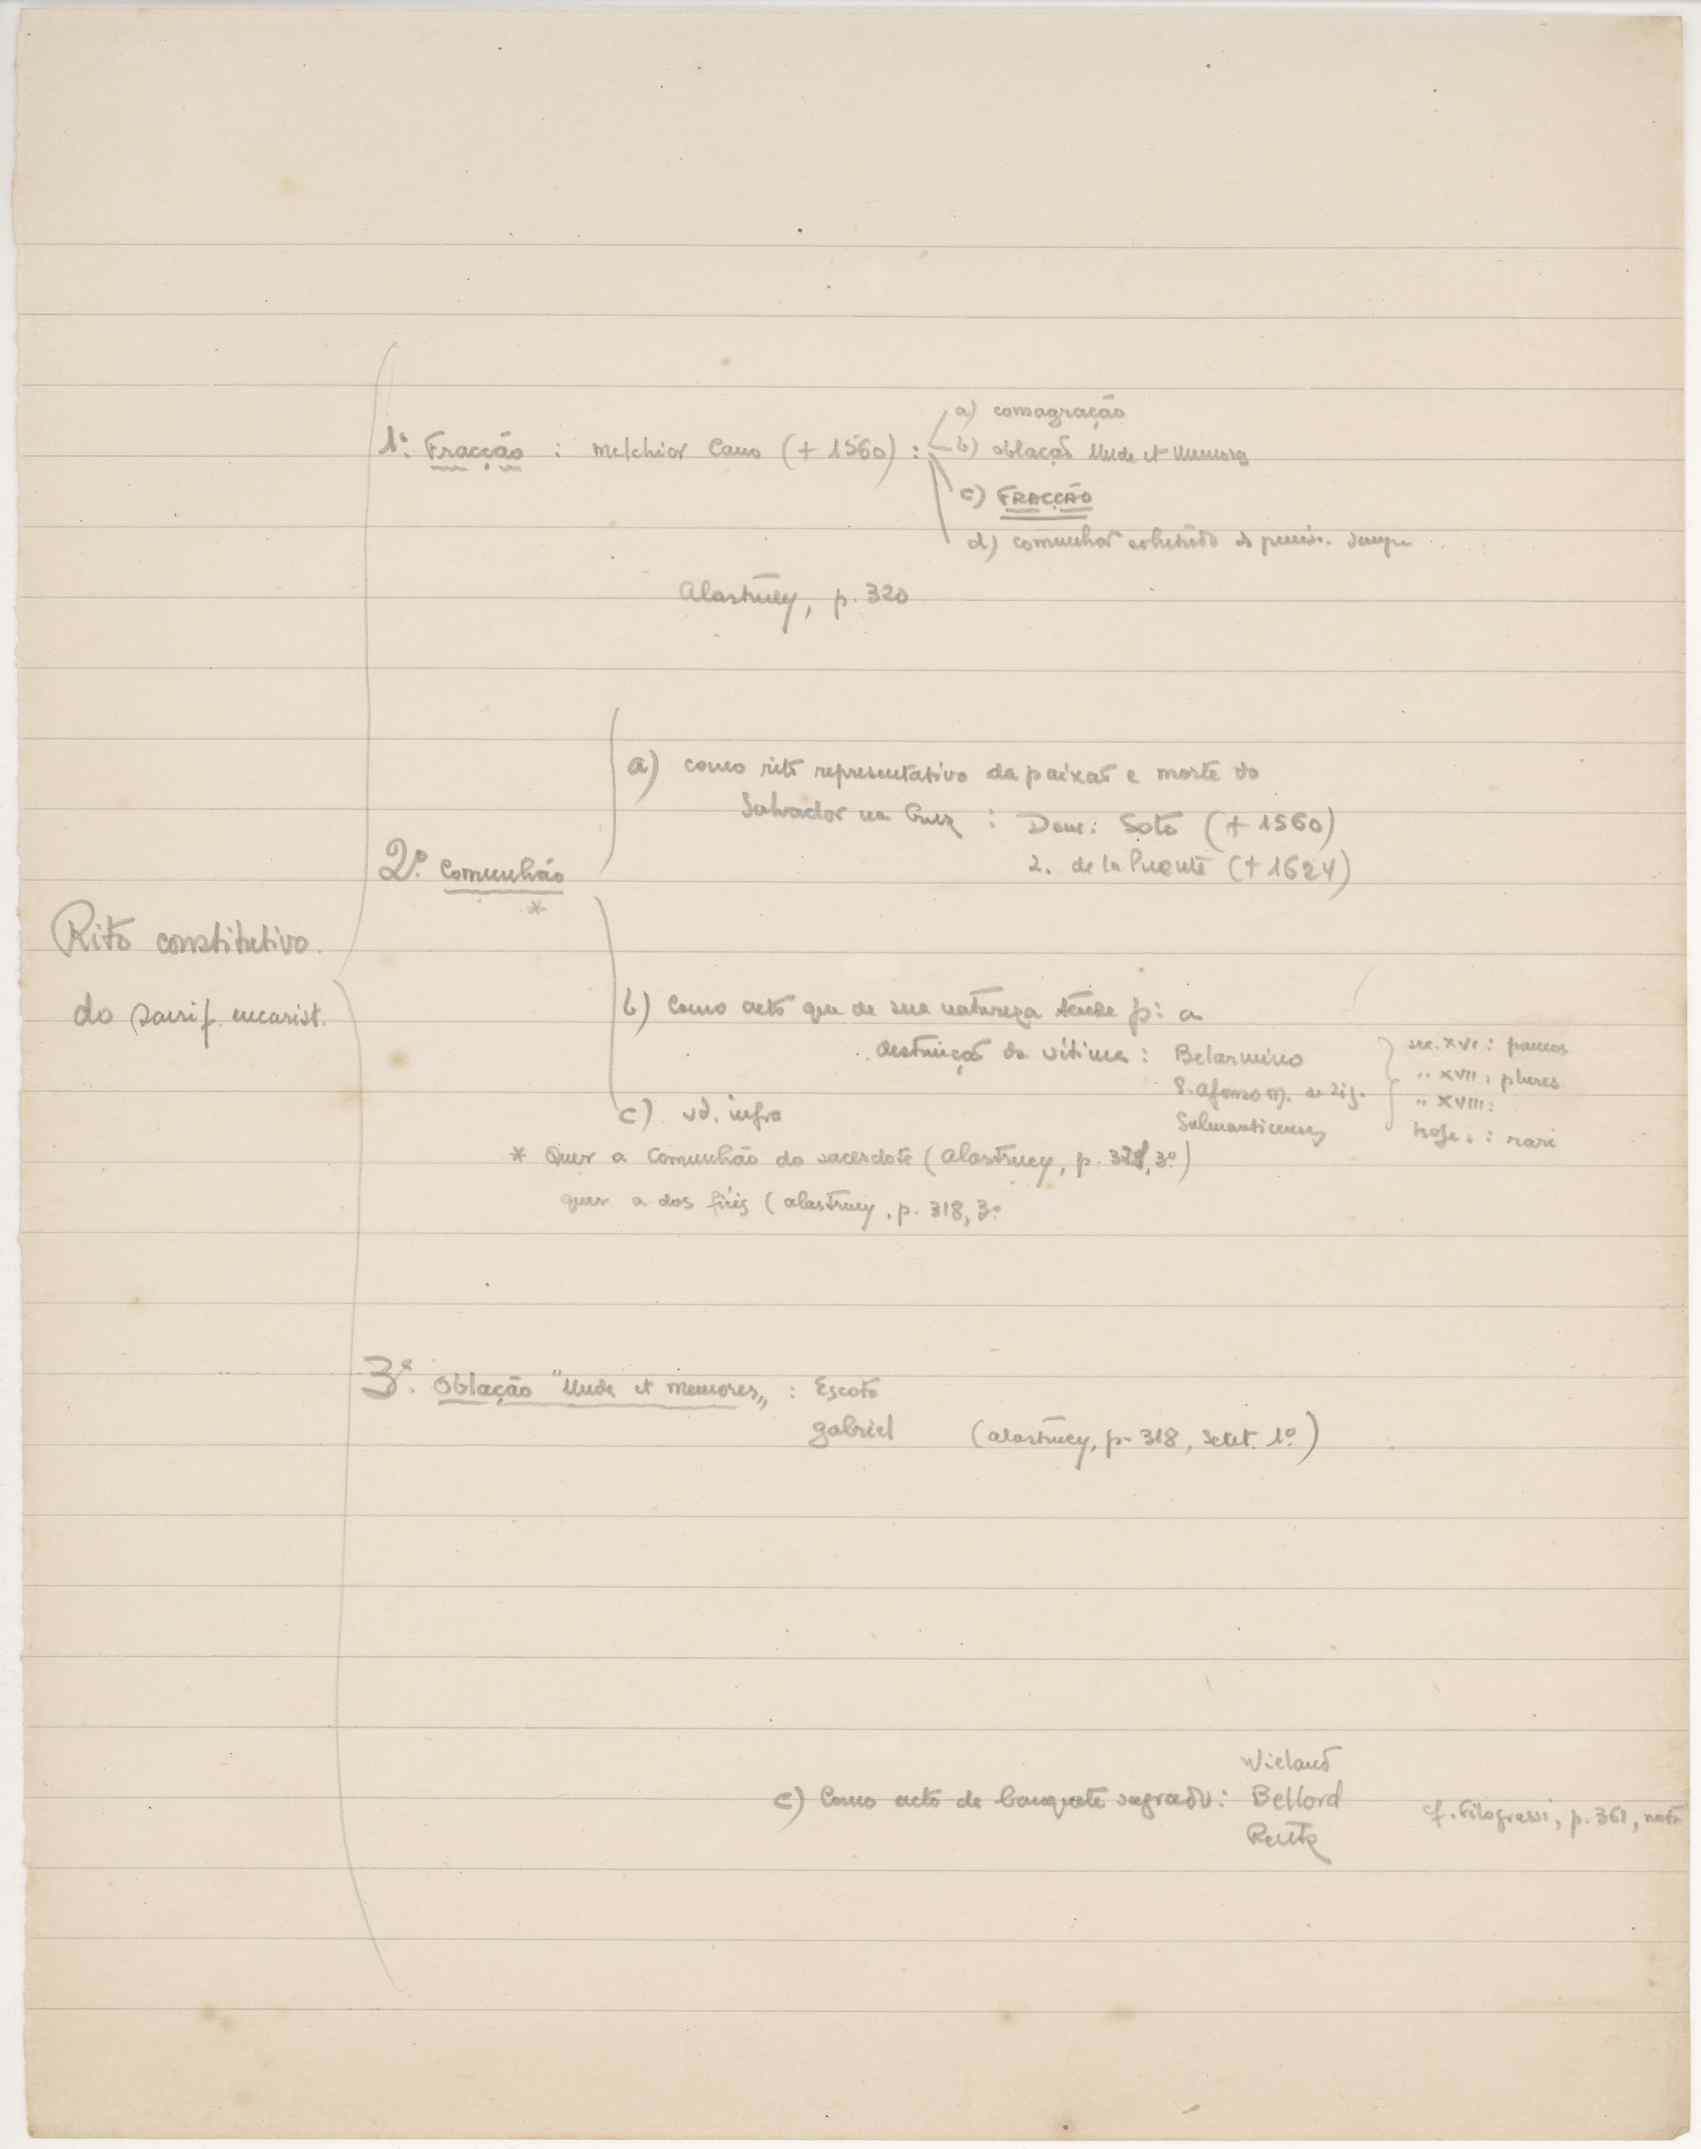 1º. Fracção : Melchior Cano (+ 1560) :
a) consagração
b) oblação Unde et memores
c) FRACÇÃO
d) comunhão
Alastruey, p. 320
a) como rito representativo da paixão e morte do
Salvador na Cruz : Dom: Soto (+ 1560)
L. de la Puente (+ 1624)
2º. Comunhão
*
Rito constitutivo
do sacrif. eucarist.
b) Como acto que de sua natureza tende p: a
destruição da vítima : Belarmino
S. Afonso M. de Lig.
Salmanticenses
sec. XVI : paucos
" XVII : plures
" XVIII :
hoje : rari
c) vd. infra
* Quer a Comunhão do sacerdote (Alastruey, p. 328, 3º)
quer a dos fiéis (Alastruey, p. 318, 3º
3º. Oblação "Unde et memores" : Escoto
Gabriel (Alastruey, p. 318, Sent. 1º)
c) Como acto de banquete sagrado : Wieland
Bellord
Rentz
cf. Filograssi, p. 361, nota